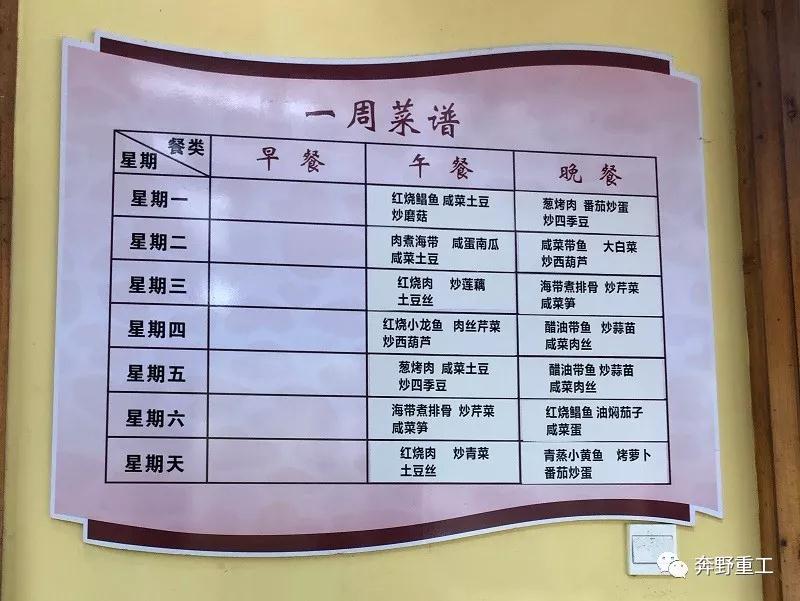 一周菜谱
餐类
星期
早餐
午餐
晚餐
星期一
红烧鲳鱼 咸菜土豆
炒磨菇
葱烤肉 番茄炒蛋
炒四季豆
星期二
肉煮海带 咸蛋南瓜
咸菜土豆
咸菜带鱼 大白菜
炒西葫芦
星期三
红烧肉 炒莲藕
土豆丝
海带煮排骨 炒芹菜
咸菜笋
星期四
红烧小龙鱼 肉丝芹菜
炒西葫芦
醋油带鱼 炒蒜苗
咸菜肉丝
星期五
葱烤肉 咸菜土豆
炒四季豆
醋油带鱼 炒蒜苗
咸菜肉丝
星期六
海带煮排骨 炒芹菜
咸菜笋
红烧鲳鱼 油焖茄子
咸菜蛋
星期天
红烧肉 炒青菜
土豆丝
青蒸小黄鱼 烤萝卜
番茄炒蛋
奔野重工